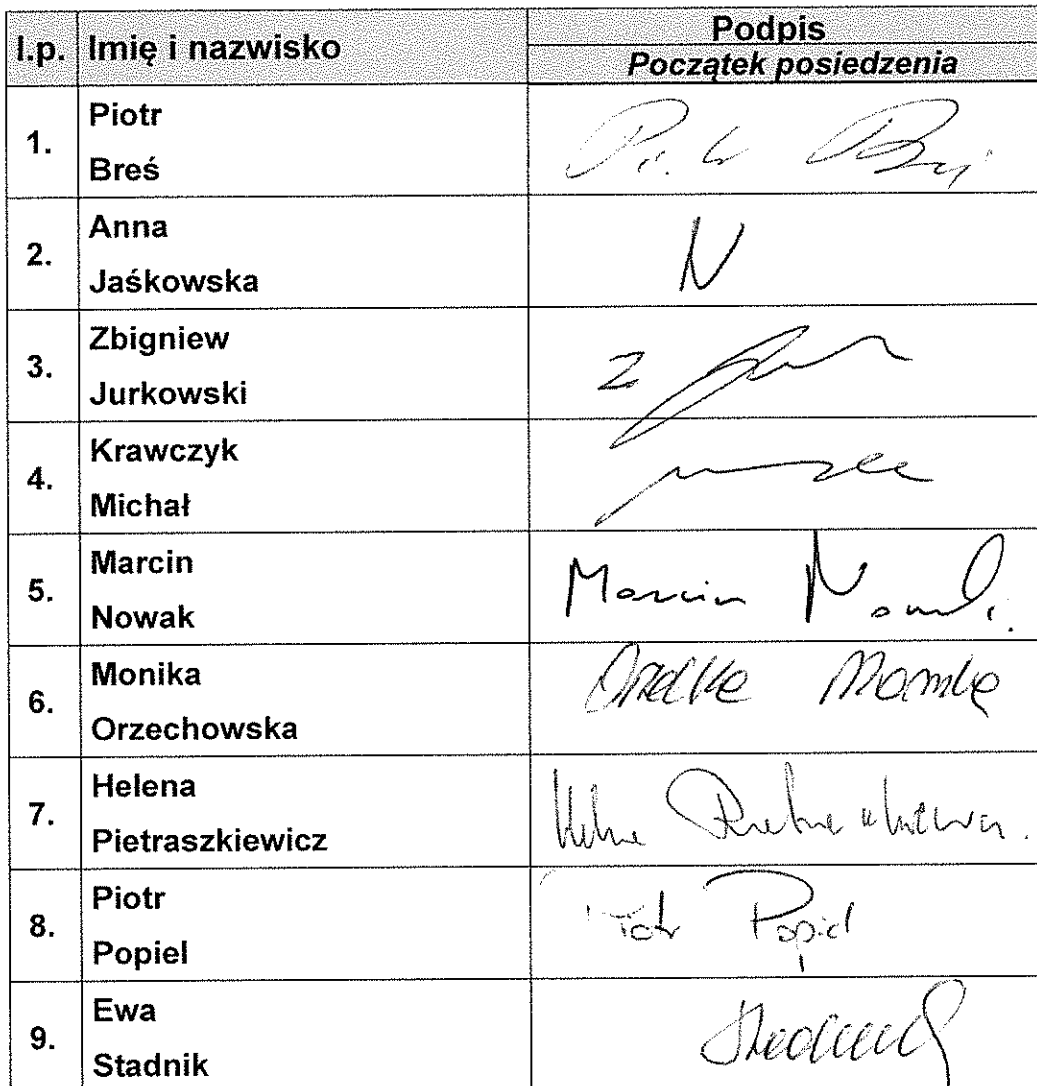 l.p. Imię i nazwisko Podpis
Początek posiedzenia
1. Piotr
Breś
2. Anna
Jaśkowska
N
3. Zbigniew
Jurkowski
Z
4. Krawczyk
Michał
5. Marcin
Nowak
Marcin Nowak
6. Monika
Orzechowska
7. Helena
Pietraszkiewicz
8. Piotr
Popiel
Piotr Popiel
9. Ewa
Stadnik